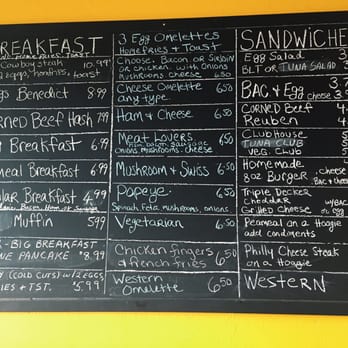 BREAKFAST
Homefries Toast
Cowboy steak 10.99
2 eggs, homefries, toast
Eggs Benedict 8.99
Corned Beef Hash 7.99
Breakfast 6.99
meal Breakfast 6.99
Breakfast 4.99
Muffin 5.99
BIG BREAKFAST
ONE PANCAKE $8.99
(COLD CUTS) w/2 EGGS
FRIES + TST. $5.99
3 Egg Omelettes
HOMEFRIES + TOAST
Choose: Bacon or Sirloin
or chicken with onions
mushrooms cheese 6.50
Cheese Omelette
any type 6.50
Ham & Cheese 6.50
Meat Lovers
Ham bacon sausage
Onions mushrooms cheese 6.50
Mushroom & Swiss 6.50
Popeye
Spinach Feta mushrooms onions 6.50
Vegetarian 6.50
Chicken fingers
& french fries 6.50
Western
Omelette 6.50
SANDWICHE
Egg Salad 3
BLT or TUNA SALAD
BAC & EGG 3
cheese 3
Corned Beef
Reuben 4
Club House
TUNA CLUB
VEG CLUB
Homemade
8oz Burger cheese
Bac & chees
Triple Decker
Cheddar w/BAC
Grilled Cheese or eg
Peameal on a Hoagie
add condiments
Philly Cheese Steak
on a Hoagie
WESTERN